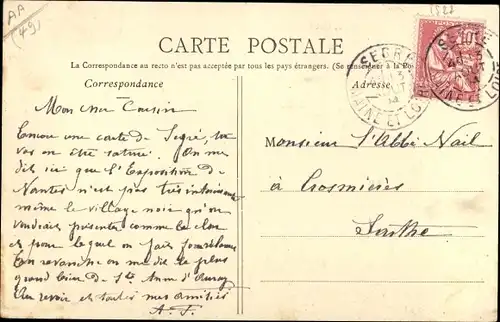 AA
(49)
1527
CARTE POSTALE
La Correspondance au recto n'est pas acceptée par tous les pays étrangers. (Se renseigner à la Po
Correspondance
Adresse
SEGRÉ
MAINE ET LOIRE
10
Mon cher Cousin
Encore une carte de Segré, tu
vas en être saturé. On me
dit ici que l'Exposition de
Nantes n'est pas très intéressante
même le village noir qu'on
voudrait présenter comme le clou
et pour lequel on fait
En revanche on me dit le plus
grand bien de Ste Anne d'Auray
Au revoir et toutes mes amitiés
A. F.
Monsieur l'Abbé Nail
à Crosmières
Sarthe